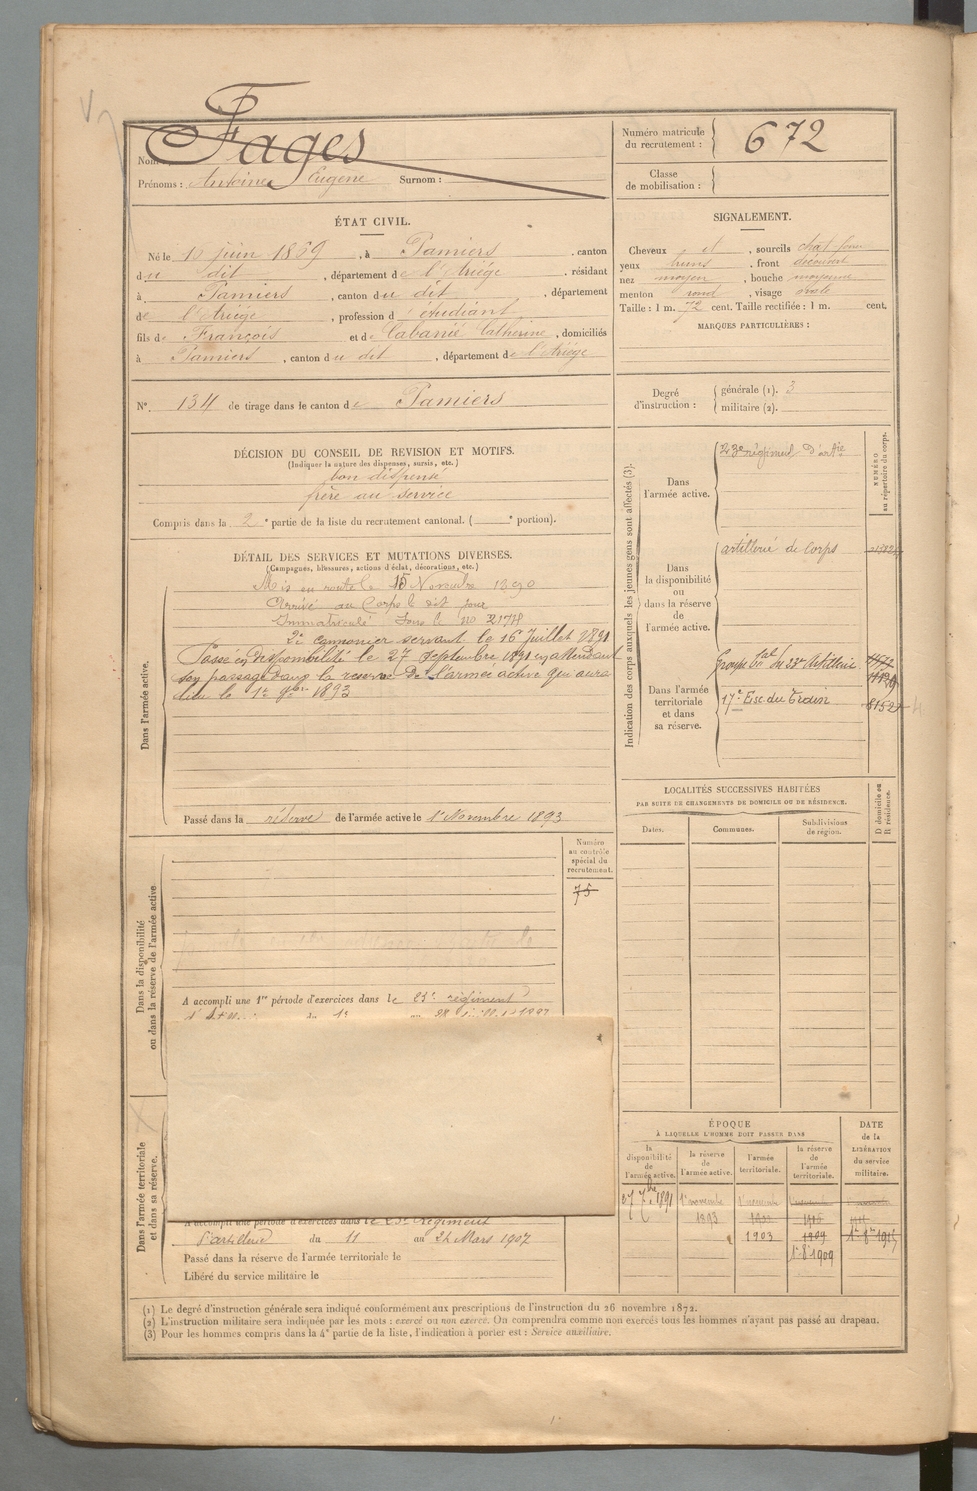 Nom : Fages
Prénoms : Antoine Eugène Surnom :
Numéro matricule du recrutement : 672
Classe de mobilisation :
ÉTAT CIVIL.
Né le juin 1869, à Pamiers, canton
du dit, département de l'Ariège, résidant
à Pamiers, canton du dit, département
de l'Ariège, profession d'étudiant
fils de François et de Cabanié Catherine, domiciliés
à Pamiers, canton du dit, département de l'Ariège
SIGNALEMENT.
Cheveux et, sourcils chat
yeux, front découvert
nez moyen, bouche moyenne
menton rond, visage ovale
Taille : 1 m. 72 cent. Taille rectifiée : 1 m. cent.
MARQUES PARTICULIÈRES :
N° 134 de tirage dans le canton de Pamiers
Degré d'instruction :
générale (1). 3
militaire (2).
DÉCISION DU CONSEIL DE REVISION ET MOTIFS.
(Indiquer la nature des dispenses, sursis, etc.)
bon dispensé
frère au service
Compris dans la 2e partie de la liste du recrutement cantonal. ( e portion).
DÉTAIL DES SERVICES ET MUTATIONS DIVERSES.
(Campagnes, blessures, actions d'éclat, décorations, etc.)
Dans l'armée active.
Mis en route le 15 Novembre 1890
Arrivé au Corps le dit jour
Immatriculé sous le no 2178
2e cannonier servant le 16 Juillet 1891
Passé en disponibilité le 27 Septembre 1891 en attendant
son passage dans la reserve de l'armée active qui aura
lieu le 1er 9bre 1893
Passé dans la réserve de l'armée active le 1er Novembre 1893
Indication des corps auxquels les jeunes gens sont affectés (3).
NUMÉRO au répertoire du corps.
Dans l'armée active.
23e régiment d'artie
Dans la disponibilité ou dans la réserve de l'armée active.
artillerie de Corps
Dans l'armée territoriale et dans sa réserve.
Groupe tal du 23e Artillerie
17e Esc. du Train
LOCALITÉS SUCCESSIVES HABITÉES
PAR SUITE DE CHANGEMENTS DE DOMICILE OU DE RÉSIDENCE.
Dates.
Communes.
Subdivisions de région.
D domicile ou R résidence.
Dans la disponibilité ou dans la réserve de l'armée active
Numéro au contrôle spécial du recrutement.
75
A accompli une 1re période d'exercices dans le 23e régiment
Dans l'armée territoriale et dans sa réserve.
A accompli une période d'exercices dans le 23e Régiment
d'artillerie du 11 au 24 Mars 1907
Passé dans la réserve de l'armée territoriale le
Libéré du service militaire le
ÉPOQUE
À LAQUELLE L'HOMME DOIT PASSER DANS
la disponibilité de l'armée active.
la réserve de l'armée active.
l'armée territoriale.
la réserve de l'armée territoriale.
DATE de la LIBÉRATION du service militaire.
27 7bre 1891
1er novembre 1893
1er novembre
1903
1909
1er 8bre 1909
1er 8bre 1915
(1) Le degré d'instruction générale sera indiqué conformément aux prescriptions de l'instruction du 26 novembre 1872.
(2) L'instruction militaire sera indiquée par les mots : exercé ou non exercé. On comprendra comme non exercés tous les hommes n'ayant pas passé au drapeau.
(3) Pour les hommes compris dans la 4e partie de la liste, l'indication à porter est : Service auxiliaire.